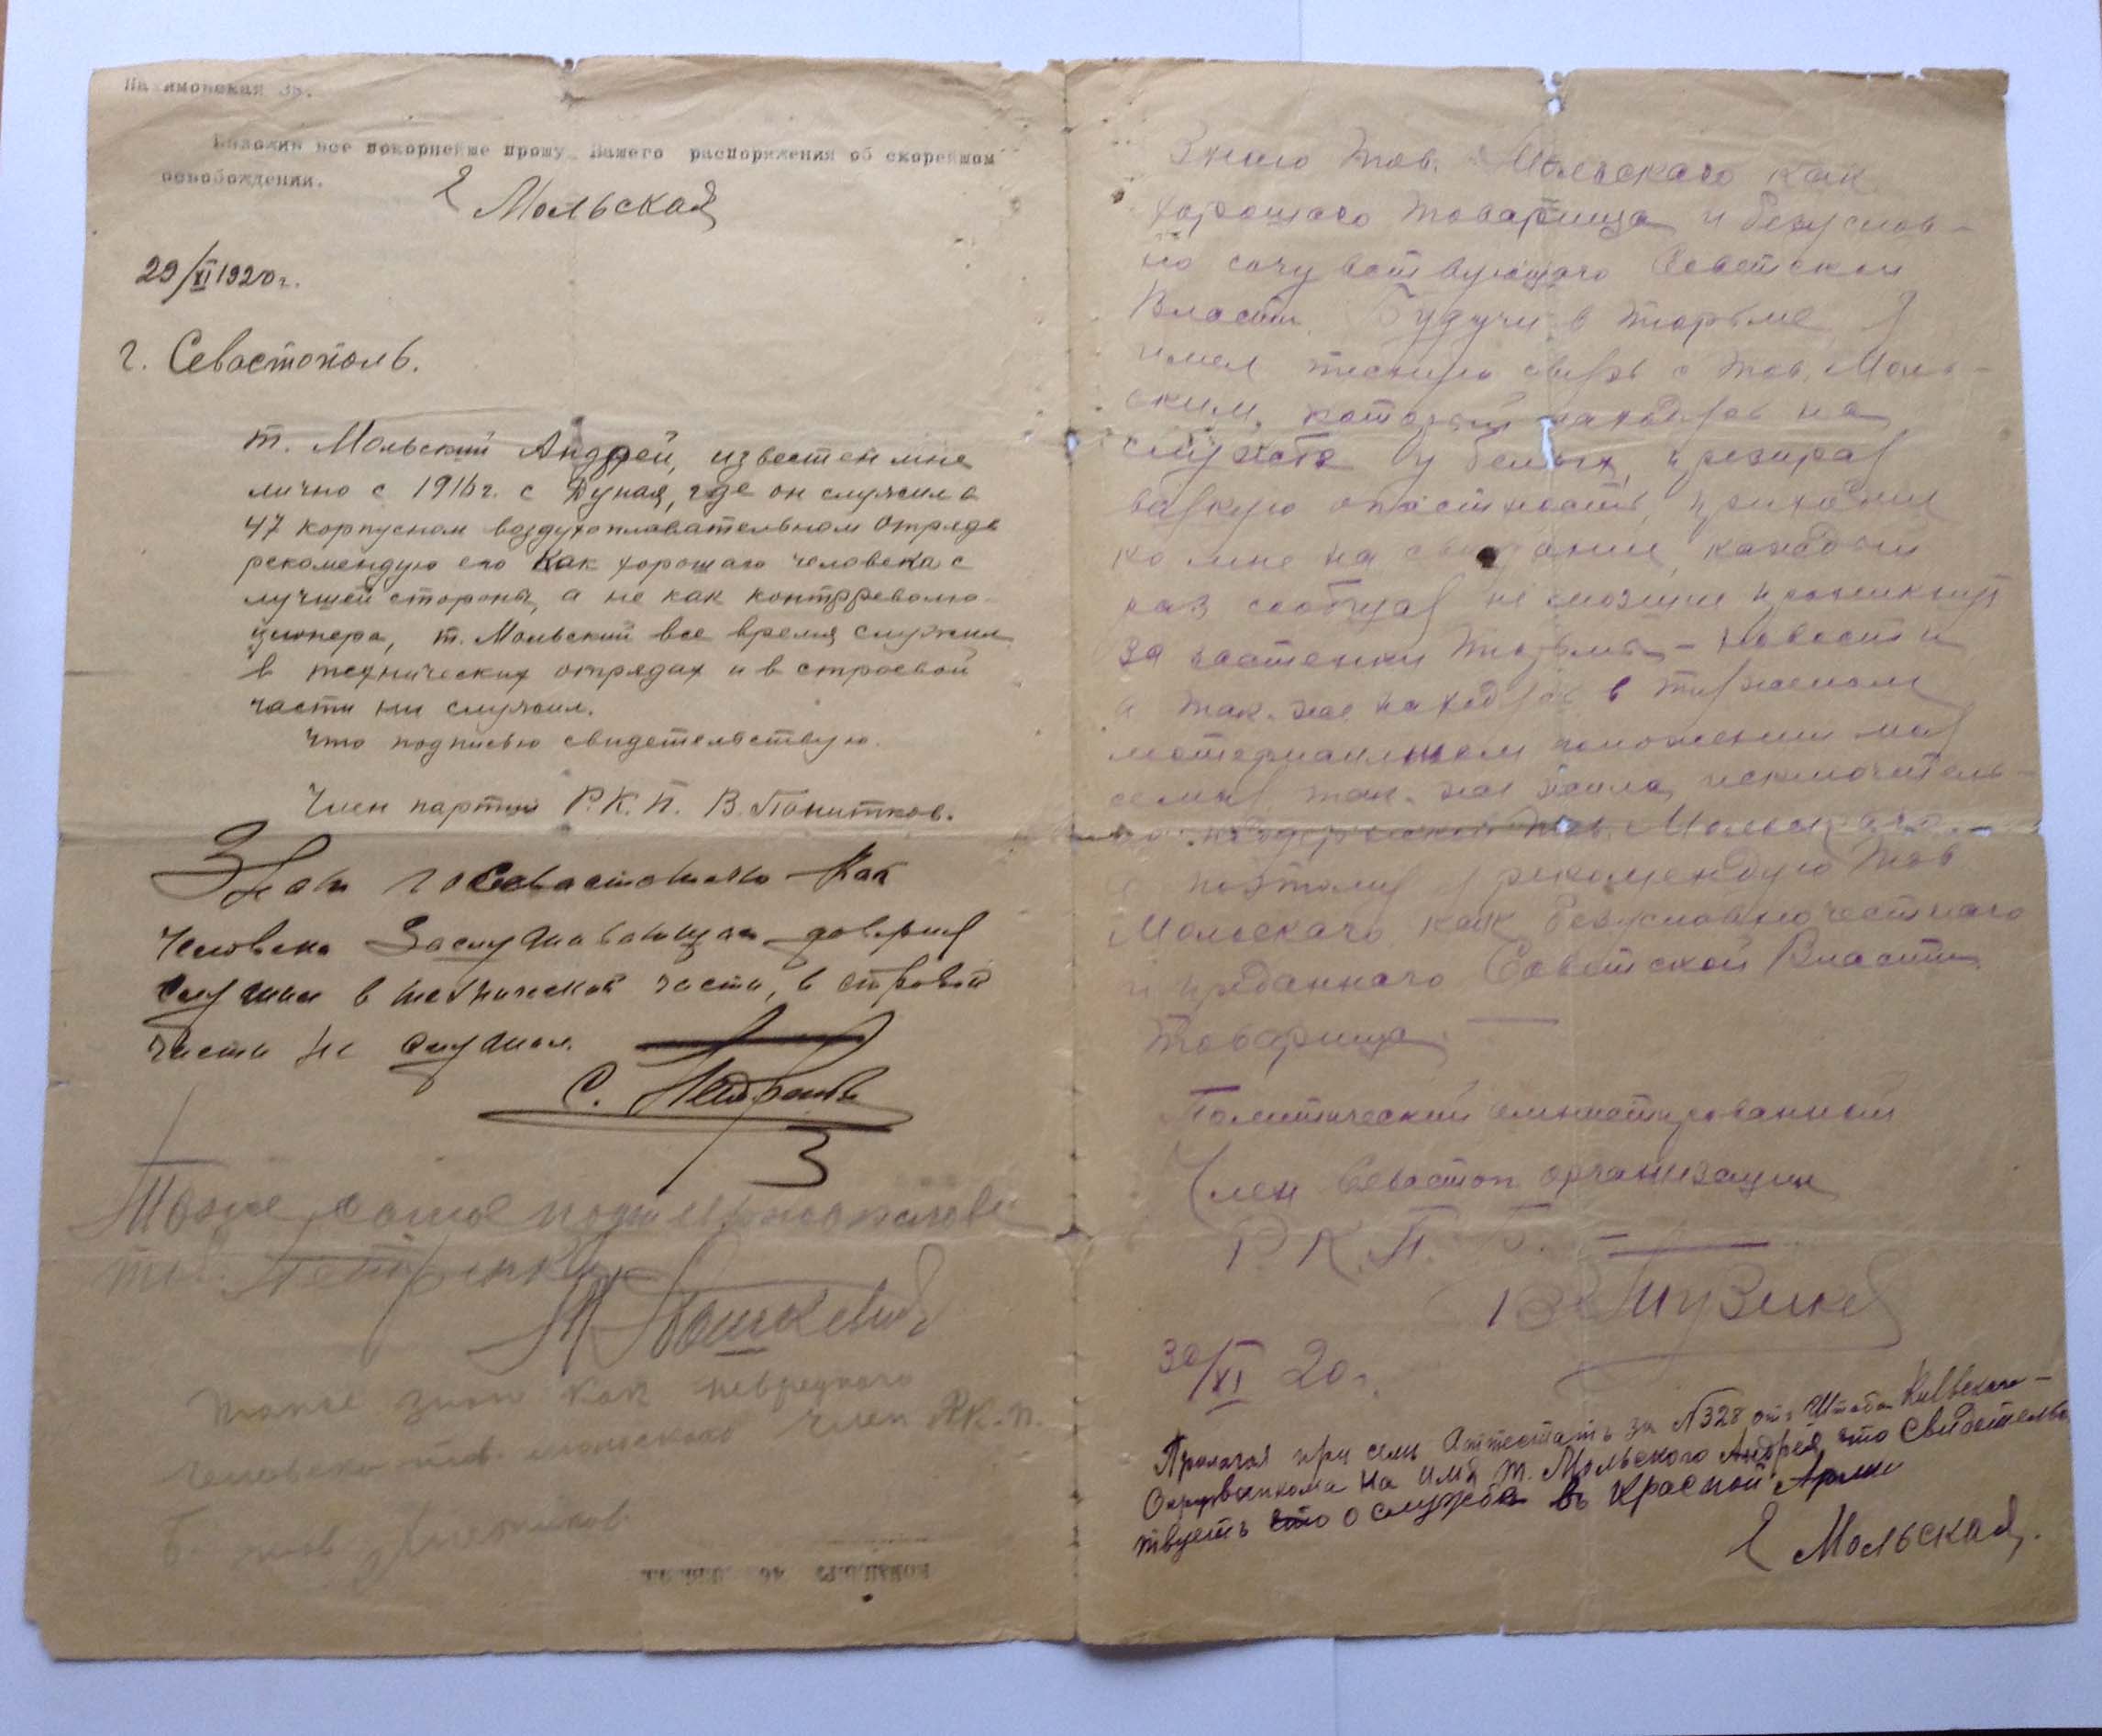 Нахимовская 35.
Изложив все покорнейше прошу Вашего распоряжения об скорейшом
освобождении.
Е Мольская
29/XI 1920 г.
г. Севастополь.
т. Мольский Андрей, известен мне
лично с 1916 г. с Дуная, где он служил в
47 корпусном воздухоплавательном отряде
рекомендую его как хорошаго человека с
лучшей стороны, а не как контрреволю-
ционера, т. Мольский все время служил
в технических отрядах и в строевой
части ни служил.
Что подписью свидетельствую.
Член партии Р.К.П. В. Понитков.
Знаю по Севастополю как
Человека Заслуживающаго доверия
служил в технической части, в строевой
части не служил.
С. Петренко
Тоже самое
тов. Петренко
М Пашкевич
тоже знаю как невредного
Человека тов. Мольского член Р.К.П.
Знаю тов. Мольскаго как
хорошаго товарища и безуслов-
но сочувствующаго Советской
Власти. Будучи в тюрьме я
имел тесную связь с тов. Моль-
ским, который находясь на
службе у белых, презирая
всякую опасность, приходил
ко мне на свидание, каждый
раз сообщая не могшие проникнуть
за застенки тюрьмы - новости
а так-же находясь в тяжелом
материальном положении моя
семья так-же жила исключитель-
но поддержкой тов. Мольскаго.
а поэтому я рекомендую тов
Мольскаго как безусловно честнаго
и преданнаго Советской Власти
товарища.
Политический амнистированный
Член Севастоп организации
Р.К.П. Б.
30/XI 20 г.
Прилагая при сем Аттестатъ за №328 отъ Штаба Киевскаго
Окрвоенкома на имя т. Мольского Андрея, что Свидетельс
твуетъ о службе въ Красной Армии
Е Мольская.